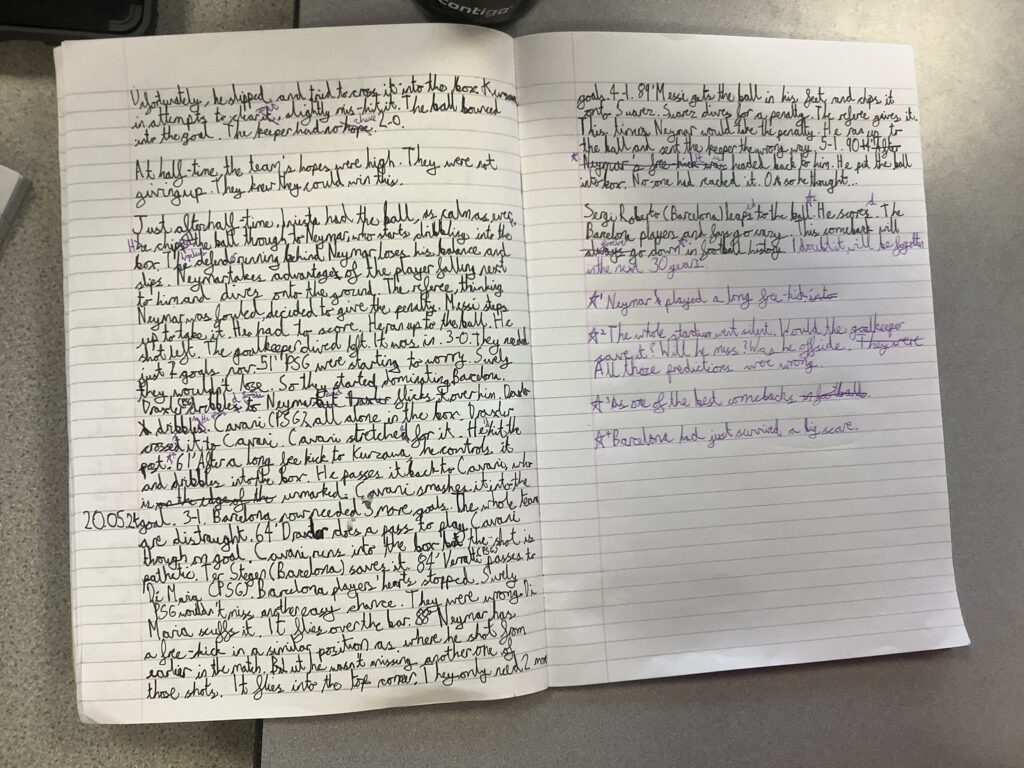 contigo
Unfortunately, he slipped and tried to cross it into the box. Kurzawa
in attempts to clear it, slightly mis-hit it. The ball bounced
into the goal. The keeper had no hope. 2-0.
chance
At half-time the team's hopes were high. They were not
giving up. They knew they could win this.
Just after half-time. Iniesta had the ball, as calm as ever.
He chips the ball though to Neymar, who starts dribbling into the
box. The defender running behind Neymar loses his balance and
slips. Neymar takes advantages of the player falling next
to him and dives onto the ground. The referee, thinking
Neymar was fowled, decided to give the penalty. Messi steps
up to take it. He had to score. He ran up to the ball. He
shot left. The goalkeeper dived left. It was in. 3-0. They need
just 2 goals now. 51' PSG were starting to worry. Surly
they wouldn't lose. So they started domination Barcelona.
Draxler dribbles to Neymar but Draxler flicks it over him. Draxler
dribbles. Cavani (PSG), all alone in the box. Draxler
crossed it to Cavani. Cavani stretched for it. He hit the
post. 61' After a long free kick to Kurzawa. He controls it
and dribbles into the box. He passes it back to Cavani, who
is on the edge of the unmarked. Cavani smashes it into the
20.05.24
goal. 3-1. Barcelona now needed 3 more goals. The whole team
are distraught. 64' Draxler does a pass to play Cavani
though on goal. Cavani runs into the box but the shot is
pathetic. Ter Stegen (Barcelona) saves it. 84' Verratti (PSG) passes to
Di Maria (PSG). Barcelona players' hearts stopped. Surly
PSG wouldn't miss another easy chance. They were wrong. Di
Maria scuffs it. It flies over the bar. 88' Neymar has
a free-kick in a similar position as where he shot from
earlier in the match. But he wasn't missing another one of
those shots. It flies into the top corner. They only need 2 more
goals. 4-1. 89' Messi gets the ball in his feet and chips it
onto Suarez. Suarez dives for a penalty. The referee gives it.
This time, Neymar would take the penalty. He ran up to
the ball and sent the keeper the wrong way. 5-1. 90+4' After
Neymar's free-kick was headed back to him. He put the ball
into box. No-one had reached it. Or so he thought...
Sergi Roberto (Barcelona) leaps to the ball. He scores. The
Barcelona players and fans go crazy. This comeback will
always go down in football history. I doubt it, will be forgotten
forever
in the next 30 years.
☆¹ Neymar played a long free-kick into
☆² The whole stadium went silent. Would the goalkeeper
save it? Will he miss? Was he offside. They were
All those predictions were wrong.
☆³ As one of the best comebacks in football.
☆⁴ Barcelona had just survived a big scare.